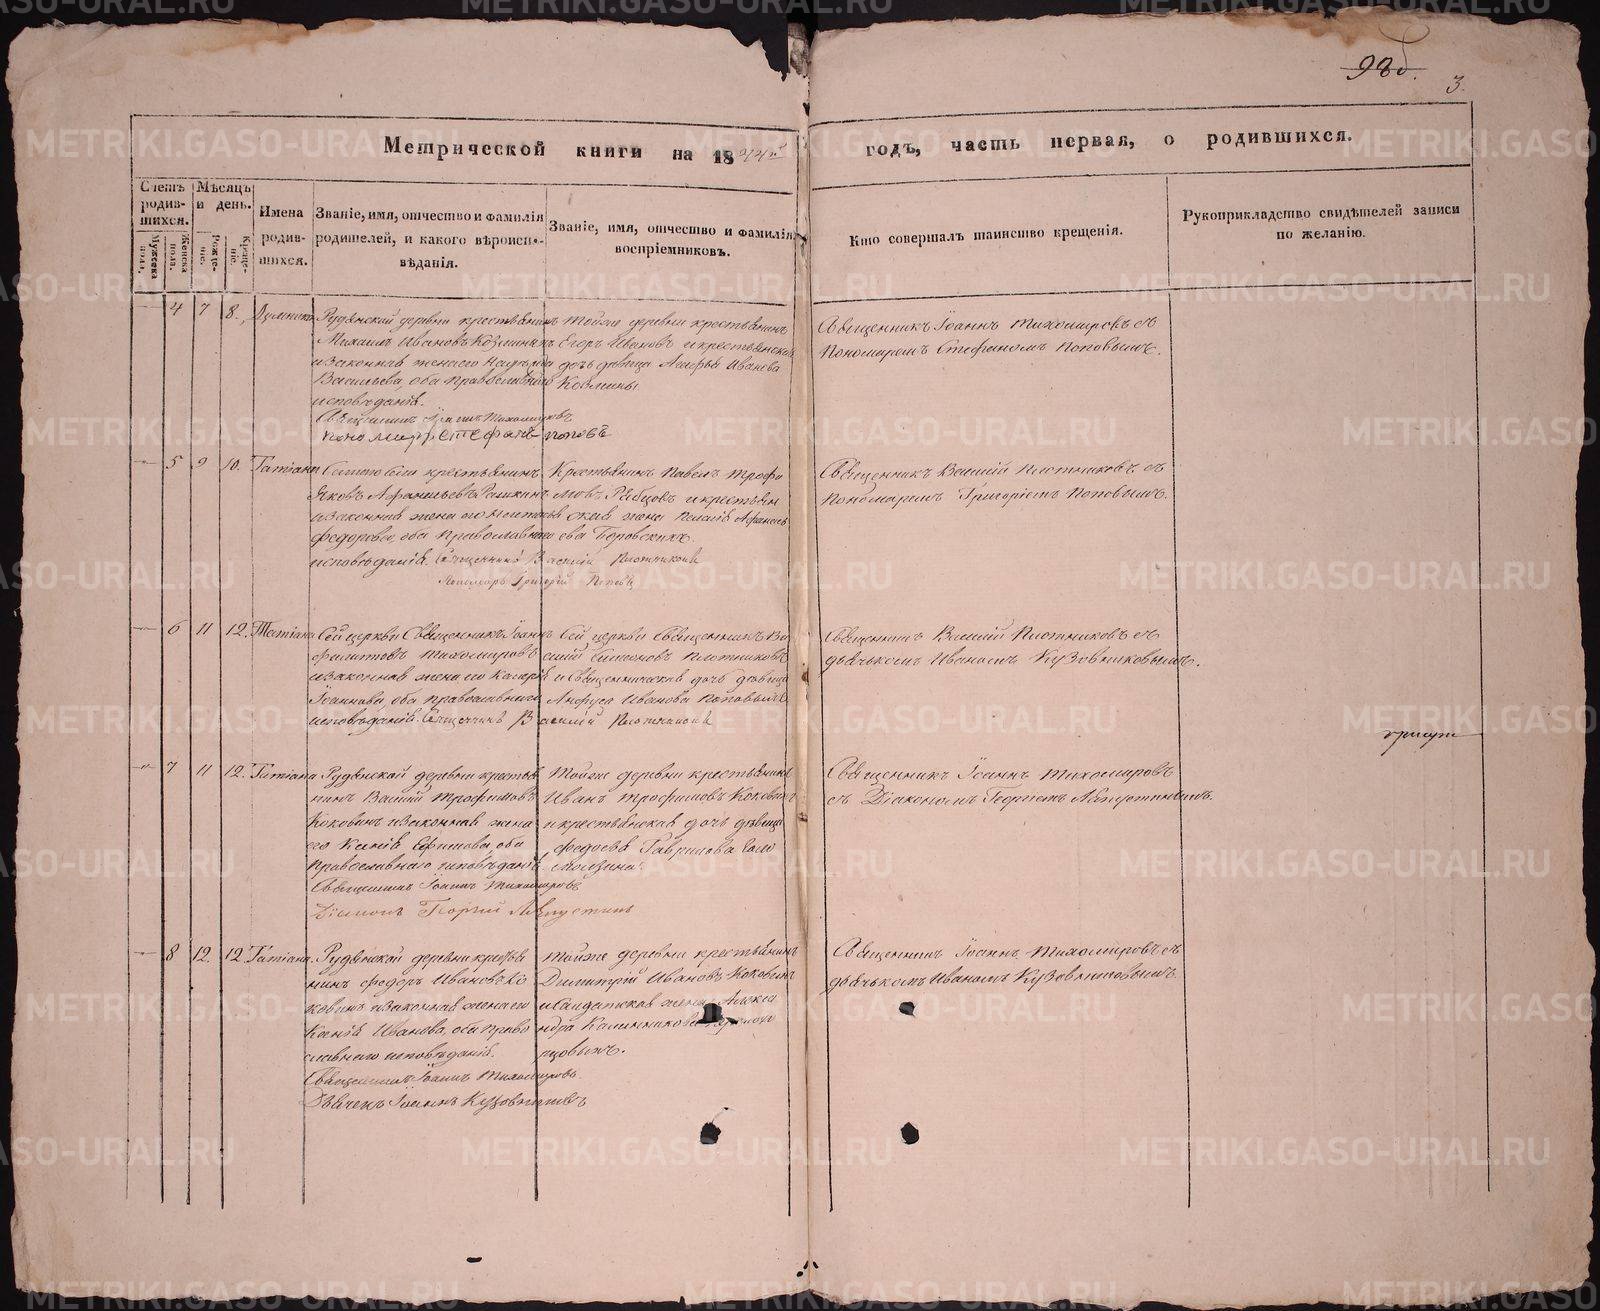 98б.
3.
Метрической книги на 1844й годъ, часть первая, о родившихся.
Счетъ родившихся.
Мужеска пола.
Женска пола.
Мѣсяцъ и день.
Рожденіе.
Крещеніе.
Имена родившихся.
Званіе, имя, отчество и фамилія родителей, и какого вѣроисповѣданія.
Званіе, имя, отчество и фамилія воспріемниковъ.
Кто совершалъ таинство крещенія.
Рукоприкладство свидѣтелей записи по желанію.
4 7 8.
Рудянской деревни крестьянинъ
Михаилъ Ивановъ Козминыхъ
и законная жена его
Васильева, оба православнаго
исповѣданія.
Тойже деревни крестьянинъ
Егоръ Ивановъ и крестьянская
дочь девица Агафья Иванова
Козмины
Священникъ Іоаннъ Тихомировъ съ
Пономаремъ Стефаномъ Поповымъ.
Священникъ Іоаннъ Тихомировъ
Пономарь Стефанъ Поповъ
5 9 10. Татіана
крестьянинъ
Яковъ Афанасьевъ
и законная жена его
Федорова, оба православнаго
исповѣданія.
Крестьянинъ Павелъ Трофи
мовъ и крестьян
ская жена Афанась
ева
Священникъ Василій Плотниковъ съ
Пономаремъ Григоріемъ Поповымъ.
Священникъ Василій Плотниковъ
Пономарь Григорій Поповъ
6 11 12. Татіана
Сей церкви Священникъ Іоаннъ
Тихомировъ
и законная жена его
Іоаннова, оба православнаго
исповѣданія.
Сей церкви Священникъ Ва
силій Плотниковъ
и Священническая дочь девица
Иванова Поповыхъ
Священникъ Василій Плотниковъ съ
дьячькомъ Иваномъ Кузовниковымъ.
Священникъ Василій Плотниковъ
7 11 12. Татіана
Рудянской деревни крестья
нинъ Василій Трофимовъ
Коковинъ и законная жена
его Ксенія Ефимова, оба
Православнаго исповѣданія
Тойже деревни крестьянинъ
Иванъ Трофимовъ Коковинъ
и крестьянская дочь девица
Федосья Гаврилова
Священникъ Іоаннъ Тихомировъ
съ Діакономъ Георгіемъ
Священникъ Іоаннъ Тихомировъ
Діаконъ Георгій
8 12. 12. Татіана
Рудянской деревни крестья
нинъ Федоръ Ивановъ Ко
ковинъ и законная жена его
Ксенія Иванова, оба право
славнаго исповѣданія.
Тойже деревни крестьянинъ
Димитрій Ивановъ Коковинъ
и Салдатская жена Алекса
ндра Калинникова
Священникъ Іоаннъ Тихомировъ съ
дьячькомъ Иваномъ Кузовниковымъ.
Священникъ Іоаннъ Тихомировъ
Дьячекъ Іоаннъ Кузовниковъ
METRIKI.GASO-URAL.RU